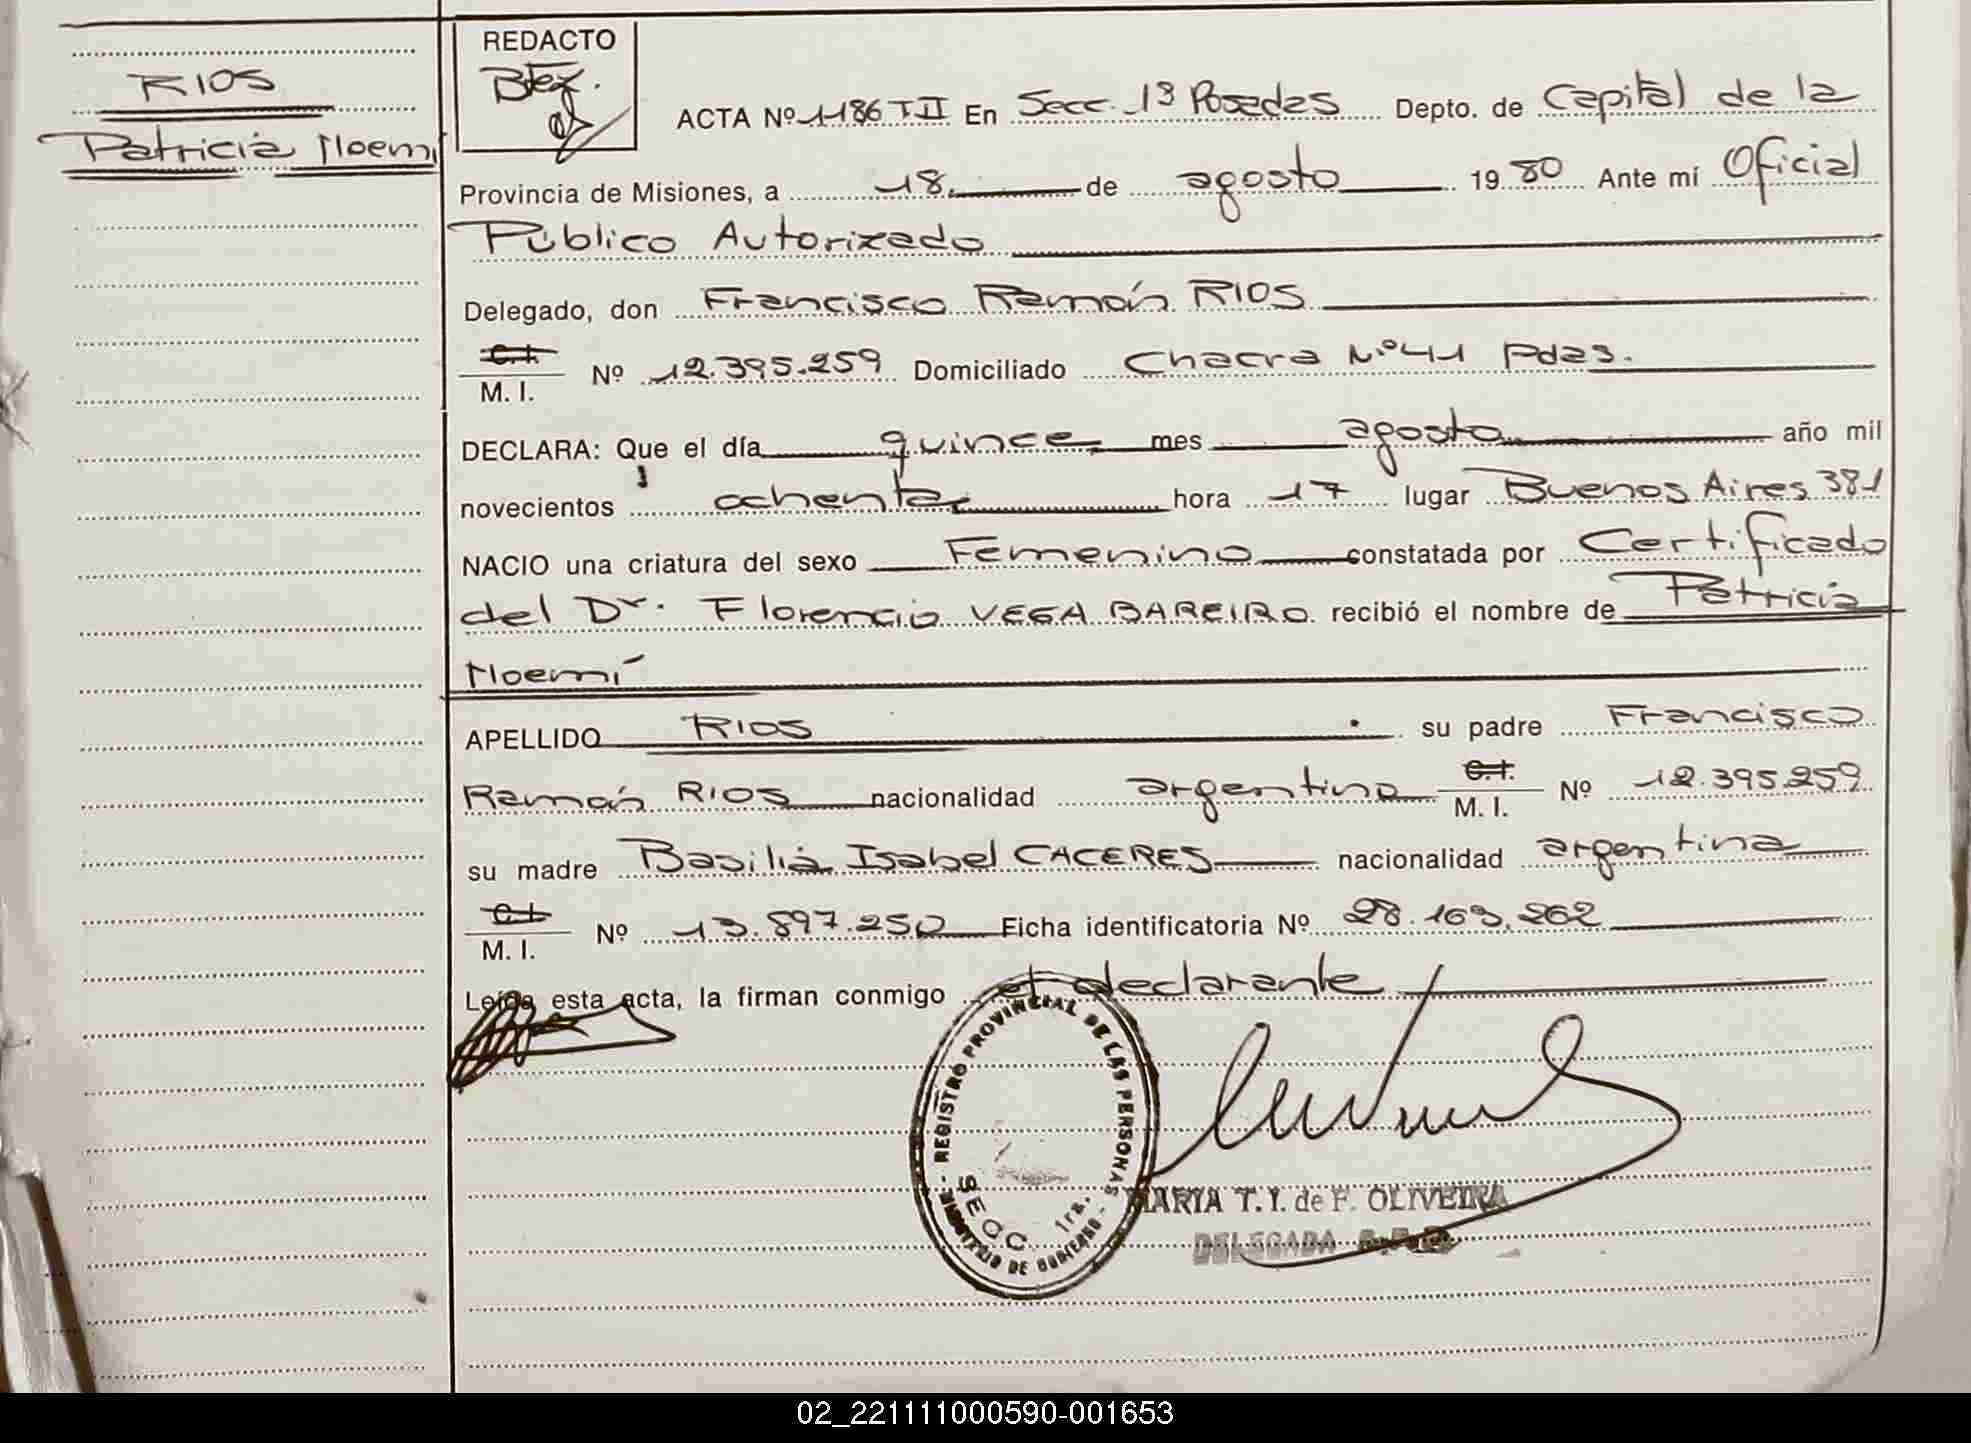 RIOS
Patricia Noemí
REDACTO
Btez.
ACTA Nº 1186 TII En Secc. 1ª Posadas Depto. de Capital de la
Provincia de Misiones, a 18 de agosto 1980 Ante mí Oficial
Público Autorizado
Delegado, don Francisco Ramón RIOS
C.I.
M. I. Nº 12.395.259 Domiciliado Chacra Nº 41 Pdas.
DECLARA: Que el día quince mes agosto año mil
novecientos ochenta hora 17 lugar Buenos Aires 381
NACIO una criatura del sexo Femenino constatada por Certificado
del Dr. Florencio VEGA BAREIRO recibió el nombre de Patricia
Noemí
APELLIDO RIOS su padre Francisco
Ramón RIOS nacionalidad argentina C.I.
M. I. Nº 12.395.259
su madre Basilia Isabel CACERES nacionalidad argentina
C.I.
M. I. Nº 13.897.250 Ficha identificatoria Nº 28.163.262
Leída esta acta, la firman conmigo el declarante
REGISTRO PROVINCIAL DE LAS PERSONAS - MINISTERIO DE GOBIERNO -
SECC. 1ra.
MARIA T. Y. de F. OLIVEIRA
DELEGADA
02_221111000590-001653